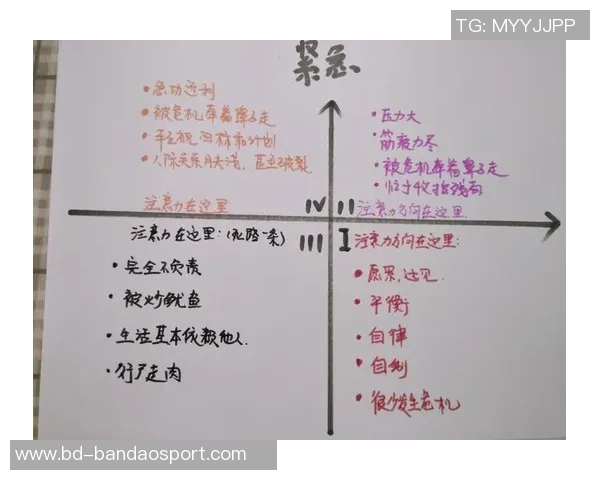 TG: MYYJJPP
紧急
• 急功近利
• 被危机牵着鼻子走
• 平白视目标和计划
• 人际关系肤浅，甚至破裂
注意力在这里
IV
• 压力大
• 筋疲力尽
• 被危机牵着鼻子走
• 忙于收拾残局
II
注意力方向在这里
注意力在这里：(死路一条)
III
• 完全不负责
• 被炒鱿鱼
• 生活基本依赖他人
• 行尸走肉
I
注意力方向在这里：
• 愿景，远见
• 平衡
• 自律
• 自制
• 很少发生危机
www.bd-bandaosport.com